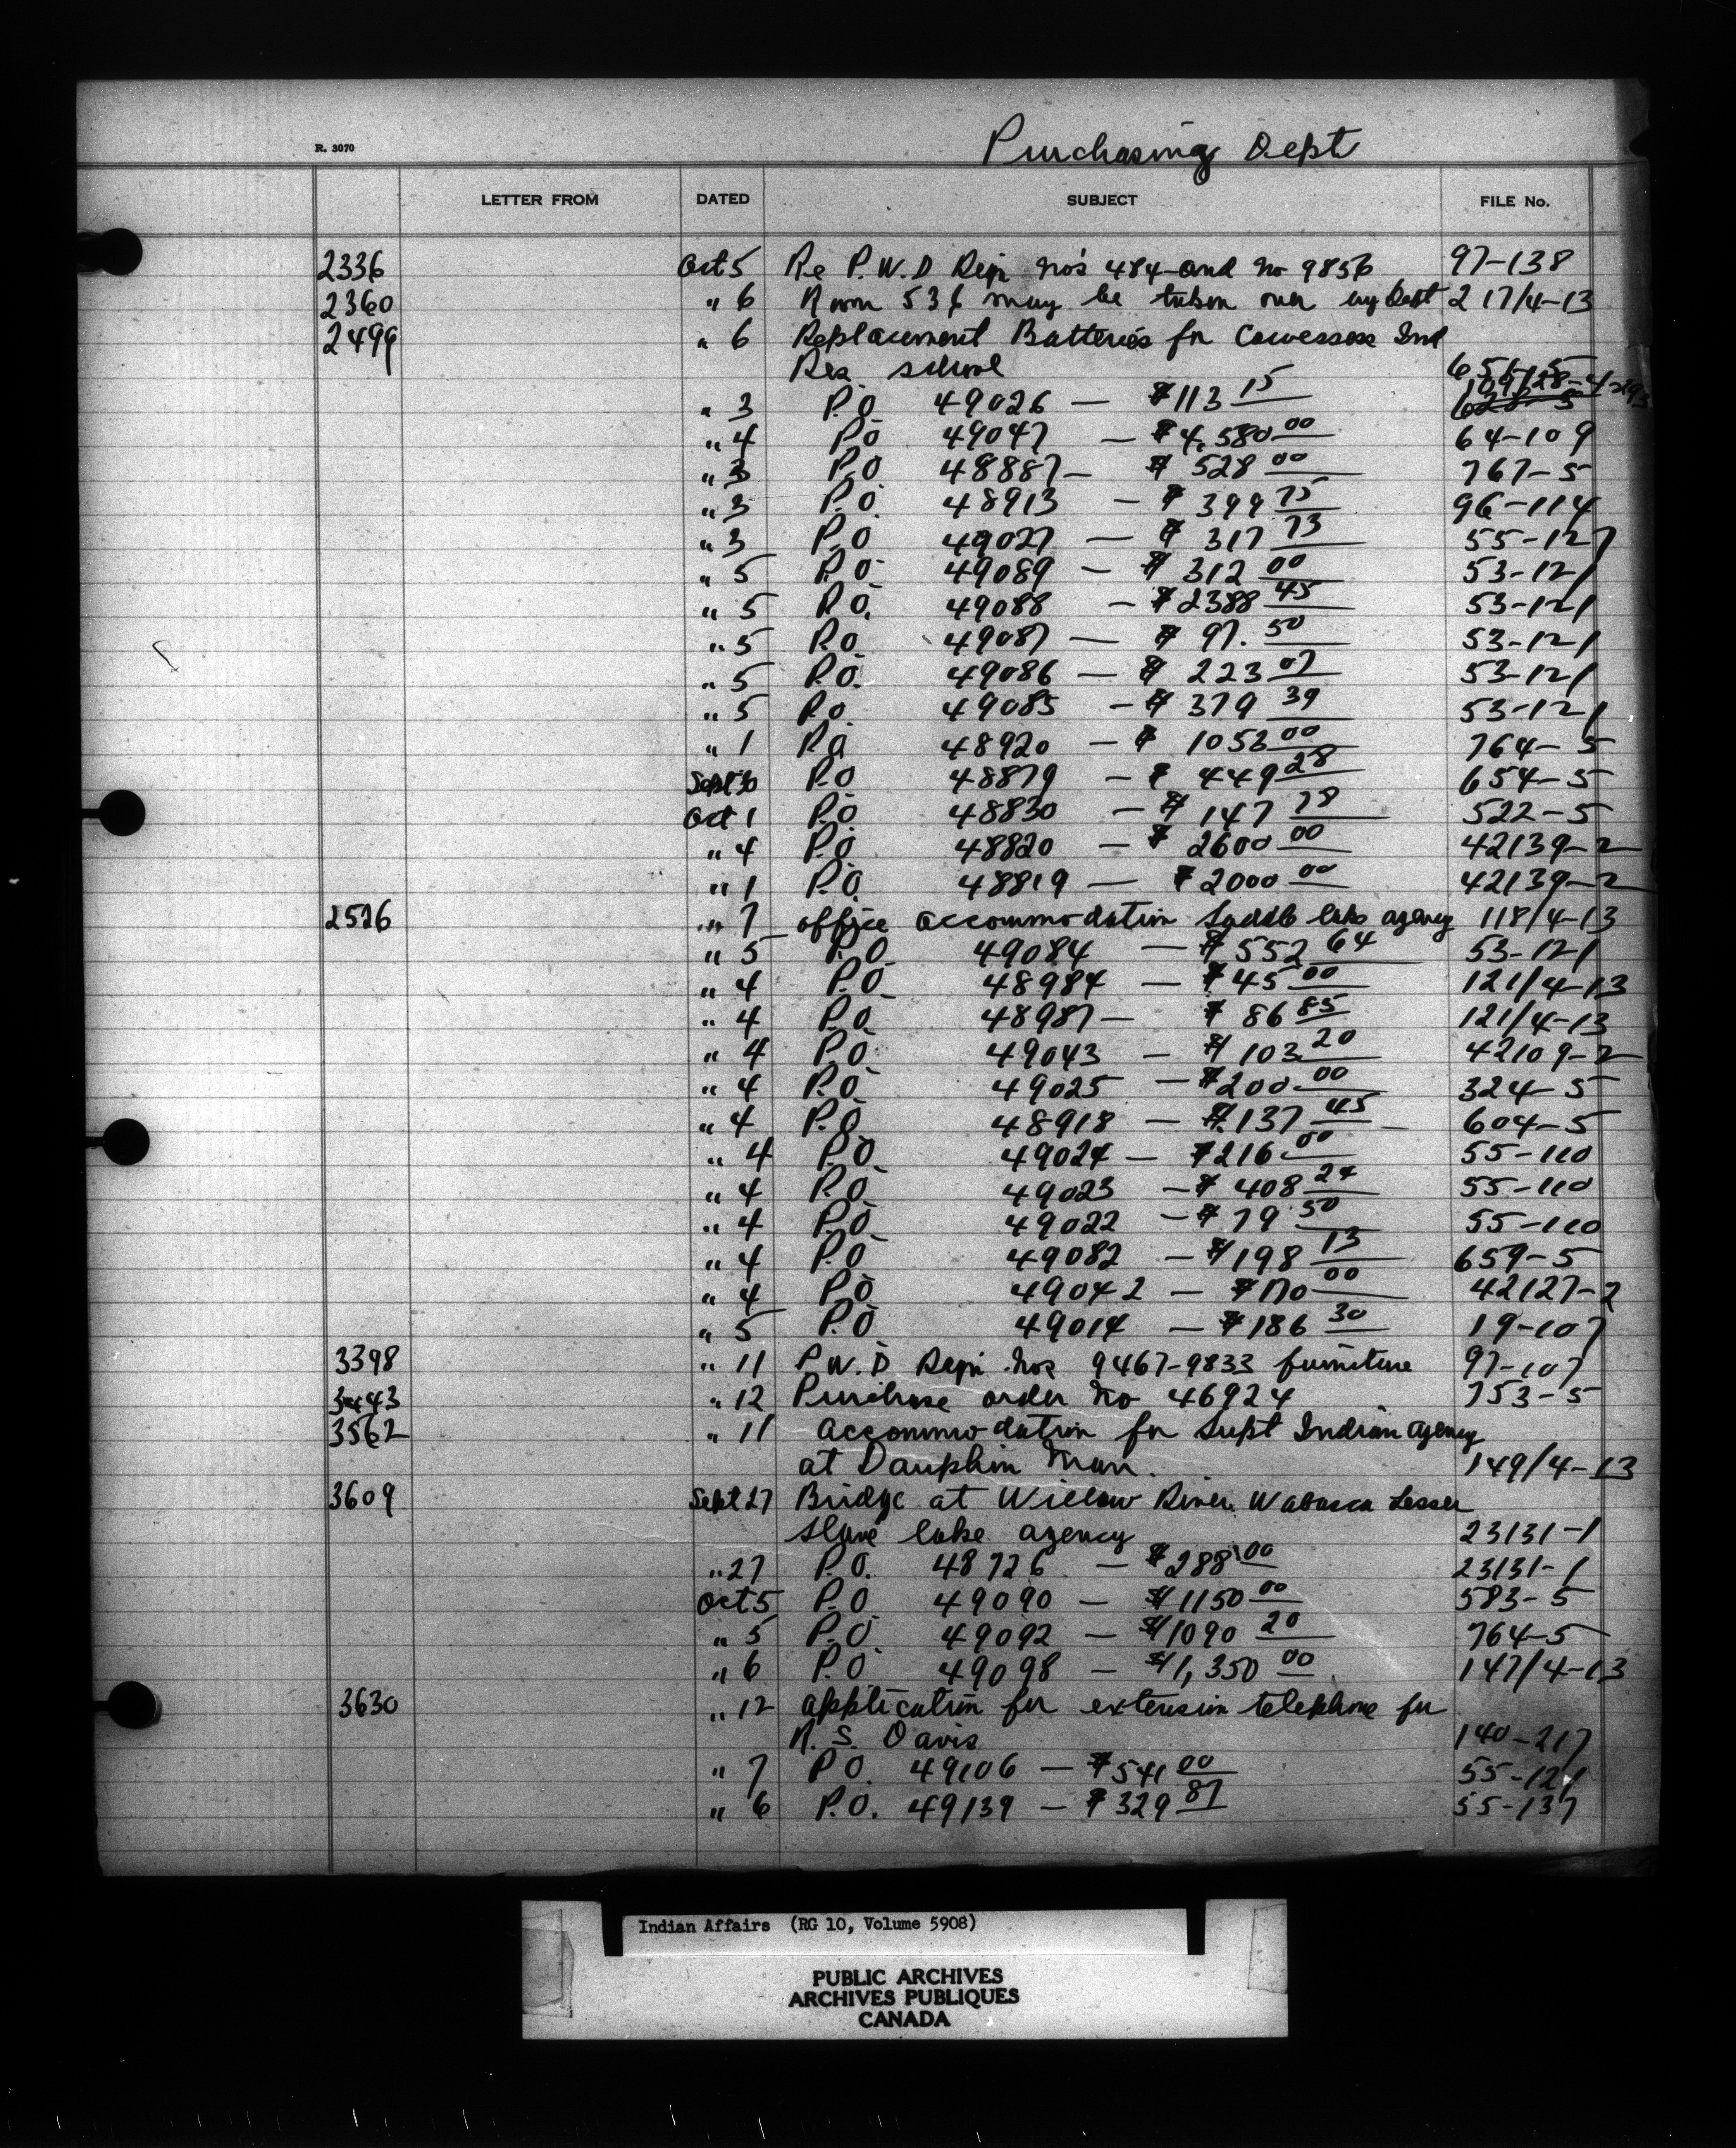 Purchasing Dept
R. 3070
LETTER FROM DATED SUBJECT FILE No.
2336 Oct 5 Re P.W.D Reqn No's 484 and No 9856 97-138
2360 " 6 Room 536 may be taken over by Dept 217/4-13
2499 " 6 Replacement Batteries for Cowessess Ind
Res. school 656-5
" 3 P.O. 49026 — $113 15
" 4 P.O 49047 — $4,580 00 64-109
" 3 P.O. 48887 — $528 00 767-5
" 3 P.O. 48913 — $399 75 96-114
" 3 P.O 49027 — $317 73 55-127
" 5 P.O 49089 — $312 00 53-121
" 5 P.O. 49088 — $2388 45 53-121
" 5 P.O. 49087 — $97.50 53-121
" 5 P.O. 49086 — $223 07 53-121
" 5 P.O. 49085 — $379 39 53-121
" 1 P.O 48920 — $1053 00 764-5
Sept 30 P.O 48879 — $449 28 654-5
Oct 1 P.O. 48830 — $147 78 522-5
" 4 P.O. 48820 — $2600 00 42139-2
" 1 P.O. 48819 — $2000 00 42139-2
2526 " 7 office accommodation Saddle lake agency 118/4-13
" 5 P.O. 49084 — $552 64 53-121
" 4 P.O. 48984 — $45 00 121/4-13
" 4 P.O. 48987 — $86 85 121/4-13
" 4 P.O. 49043 — $103 20 42109-2
" 4 P.O. 49025 — $200 00 324-5
" 4 P.O. 48918 — $137 45 604-5
" 4 P.O. 49024 — $216 00 55-110
" 4 P.O. 49023 — $408 24 55-110
" 4 P.O. 49022 — $79 50 55-110
" 4 P.O. 49082 — $198 13 659-5
" 4 P.O. 49042 — $170 00 42127-2
" 5 P.O. 49014 — $186 30 19-107
3398 " 11 P.W.D Reqn Nos 9467-9833 furniture 97-107
3443 " 12 Purchase order No 46924 753-5
3562 " 11 Accommodation for Supt Indian Agency
at Dauphin Man. 149/4-13
3609 Sept 27 Bridge at Willow River Wabasca Lesser
Slave lake agency 23131-1
" 27 P.O. 48726 — $288 00 23131-1
Oct 5 P.O 49090 — $1150 00 583-5
" 5 P.O. 49092 — $1090 20 764-5
" 6 P.O 49098 — $1,350 00 147/4-13
3630 " 12 application for extension telephone for
R. S. Davis 140-217
" 7 P.O. 49106 — $541 00 55-121
" 6 P.O. 49139 — $329 87 55-137
Indian Affairs (RG 10, Volume 5908)
PUBLIC ARCHIVES
ARCHIVES PUBLIQUES
CANADA